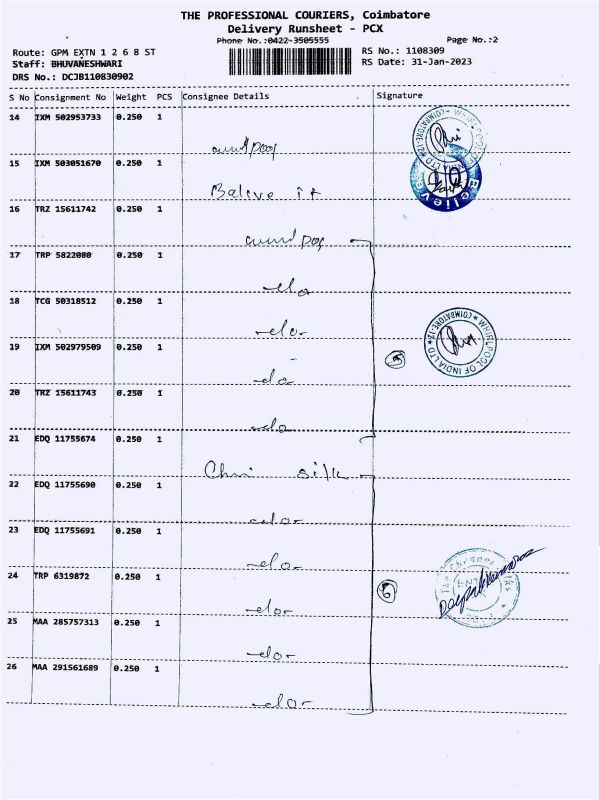 THE PROFESSIONAL COURIERS, Coimbatore
Delivery Runsheet - PCX
Phone No.:0422-3505555
Page No.:2
Route: GPM EXTN 1 2 6 8 ST
RS No.: 1108309
Staff: BHUVANESHWARI
RS Date: 31-Jan-2023
DRS No.: DCJB110830902
S No Consignment No Weight PCS Consignee Details Signature
14 IXM 502953733 0.250 1
15 IXM 503051670 0.250 1
Belive it
16 TRZ 15611742 0.250 1
17 TRP 5822080 0.250 1
-do
18 TCG 50318512 0.250 1
-do-
19 IXM 502979509 0.250 1
-do
20 TRZ 15611743 0.250 1
-do
21 EDQ 11755674 0.250 1
silk
22 EDQ 11755690 0.250 1
-do-
23 EDQ 11755691 0.250 1
-do-
24 TRP 6319872 0.250 1
-do-
25 MAA 285757313 0.250 1
-do-
26 MAA 291561689 0.250 1
-do-
WHIRLPOOL OF INDIA LTD * COIMBATORE-12 *
Believe
5
WHIRLPOOL OF INDIA LTD * COIMBATORE-12 *
6